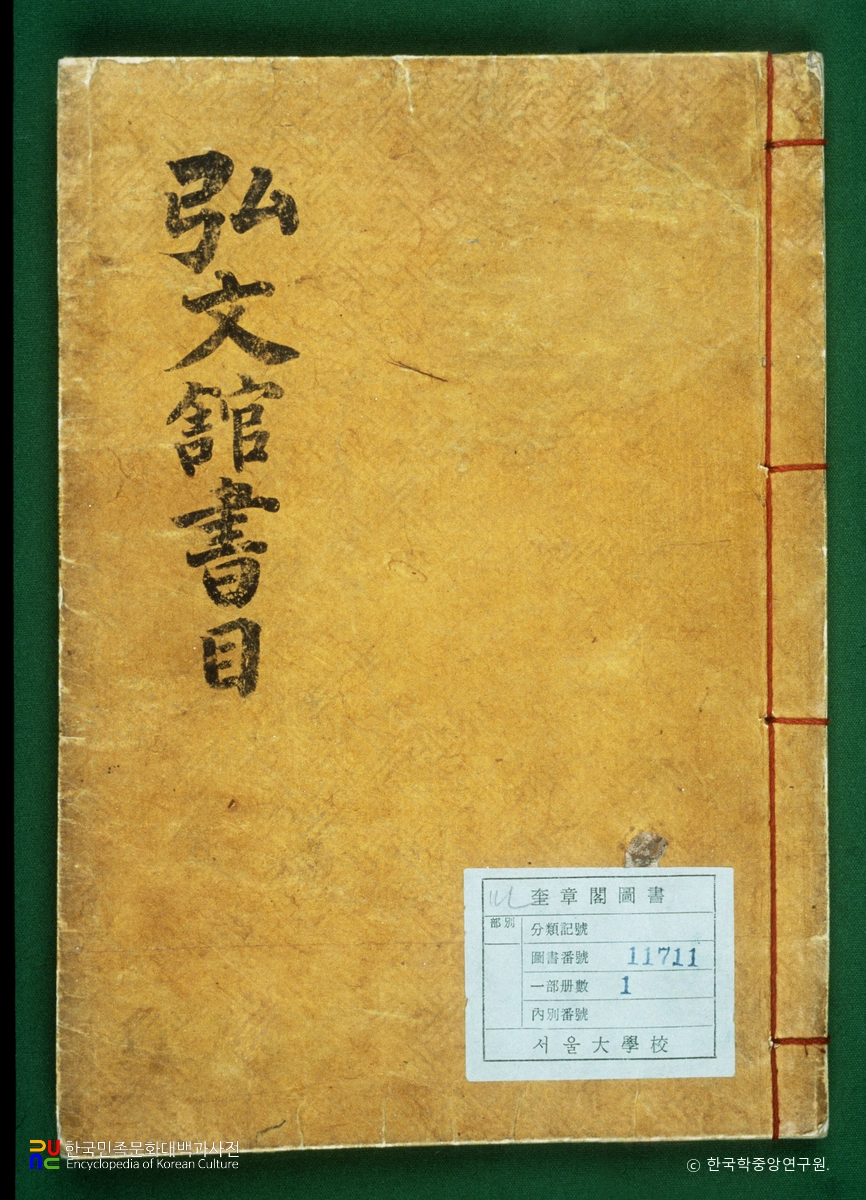 弘文舘書目
奎章閣圖書
部別
分類記號
圖書番號 11711
一部册數 1
內別番號
서울大學校
한국민족문화대백과사전
Encyclopedia of Korean Culture
© 한국학중앙연구원.